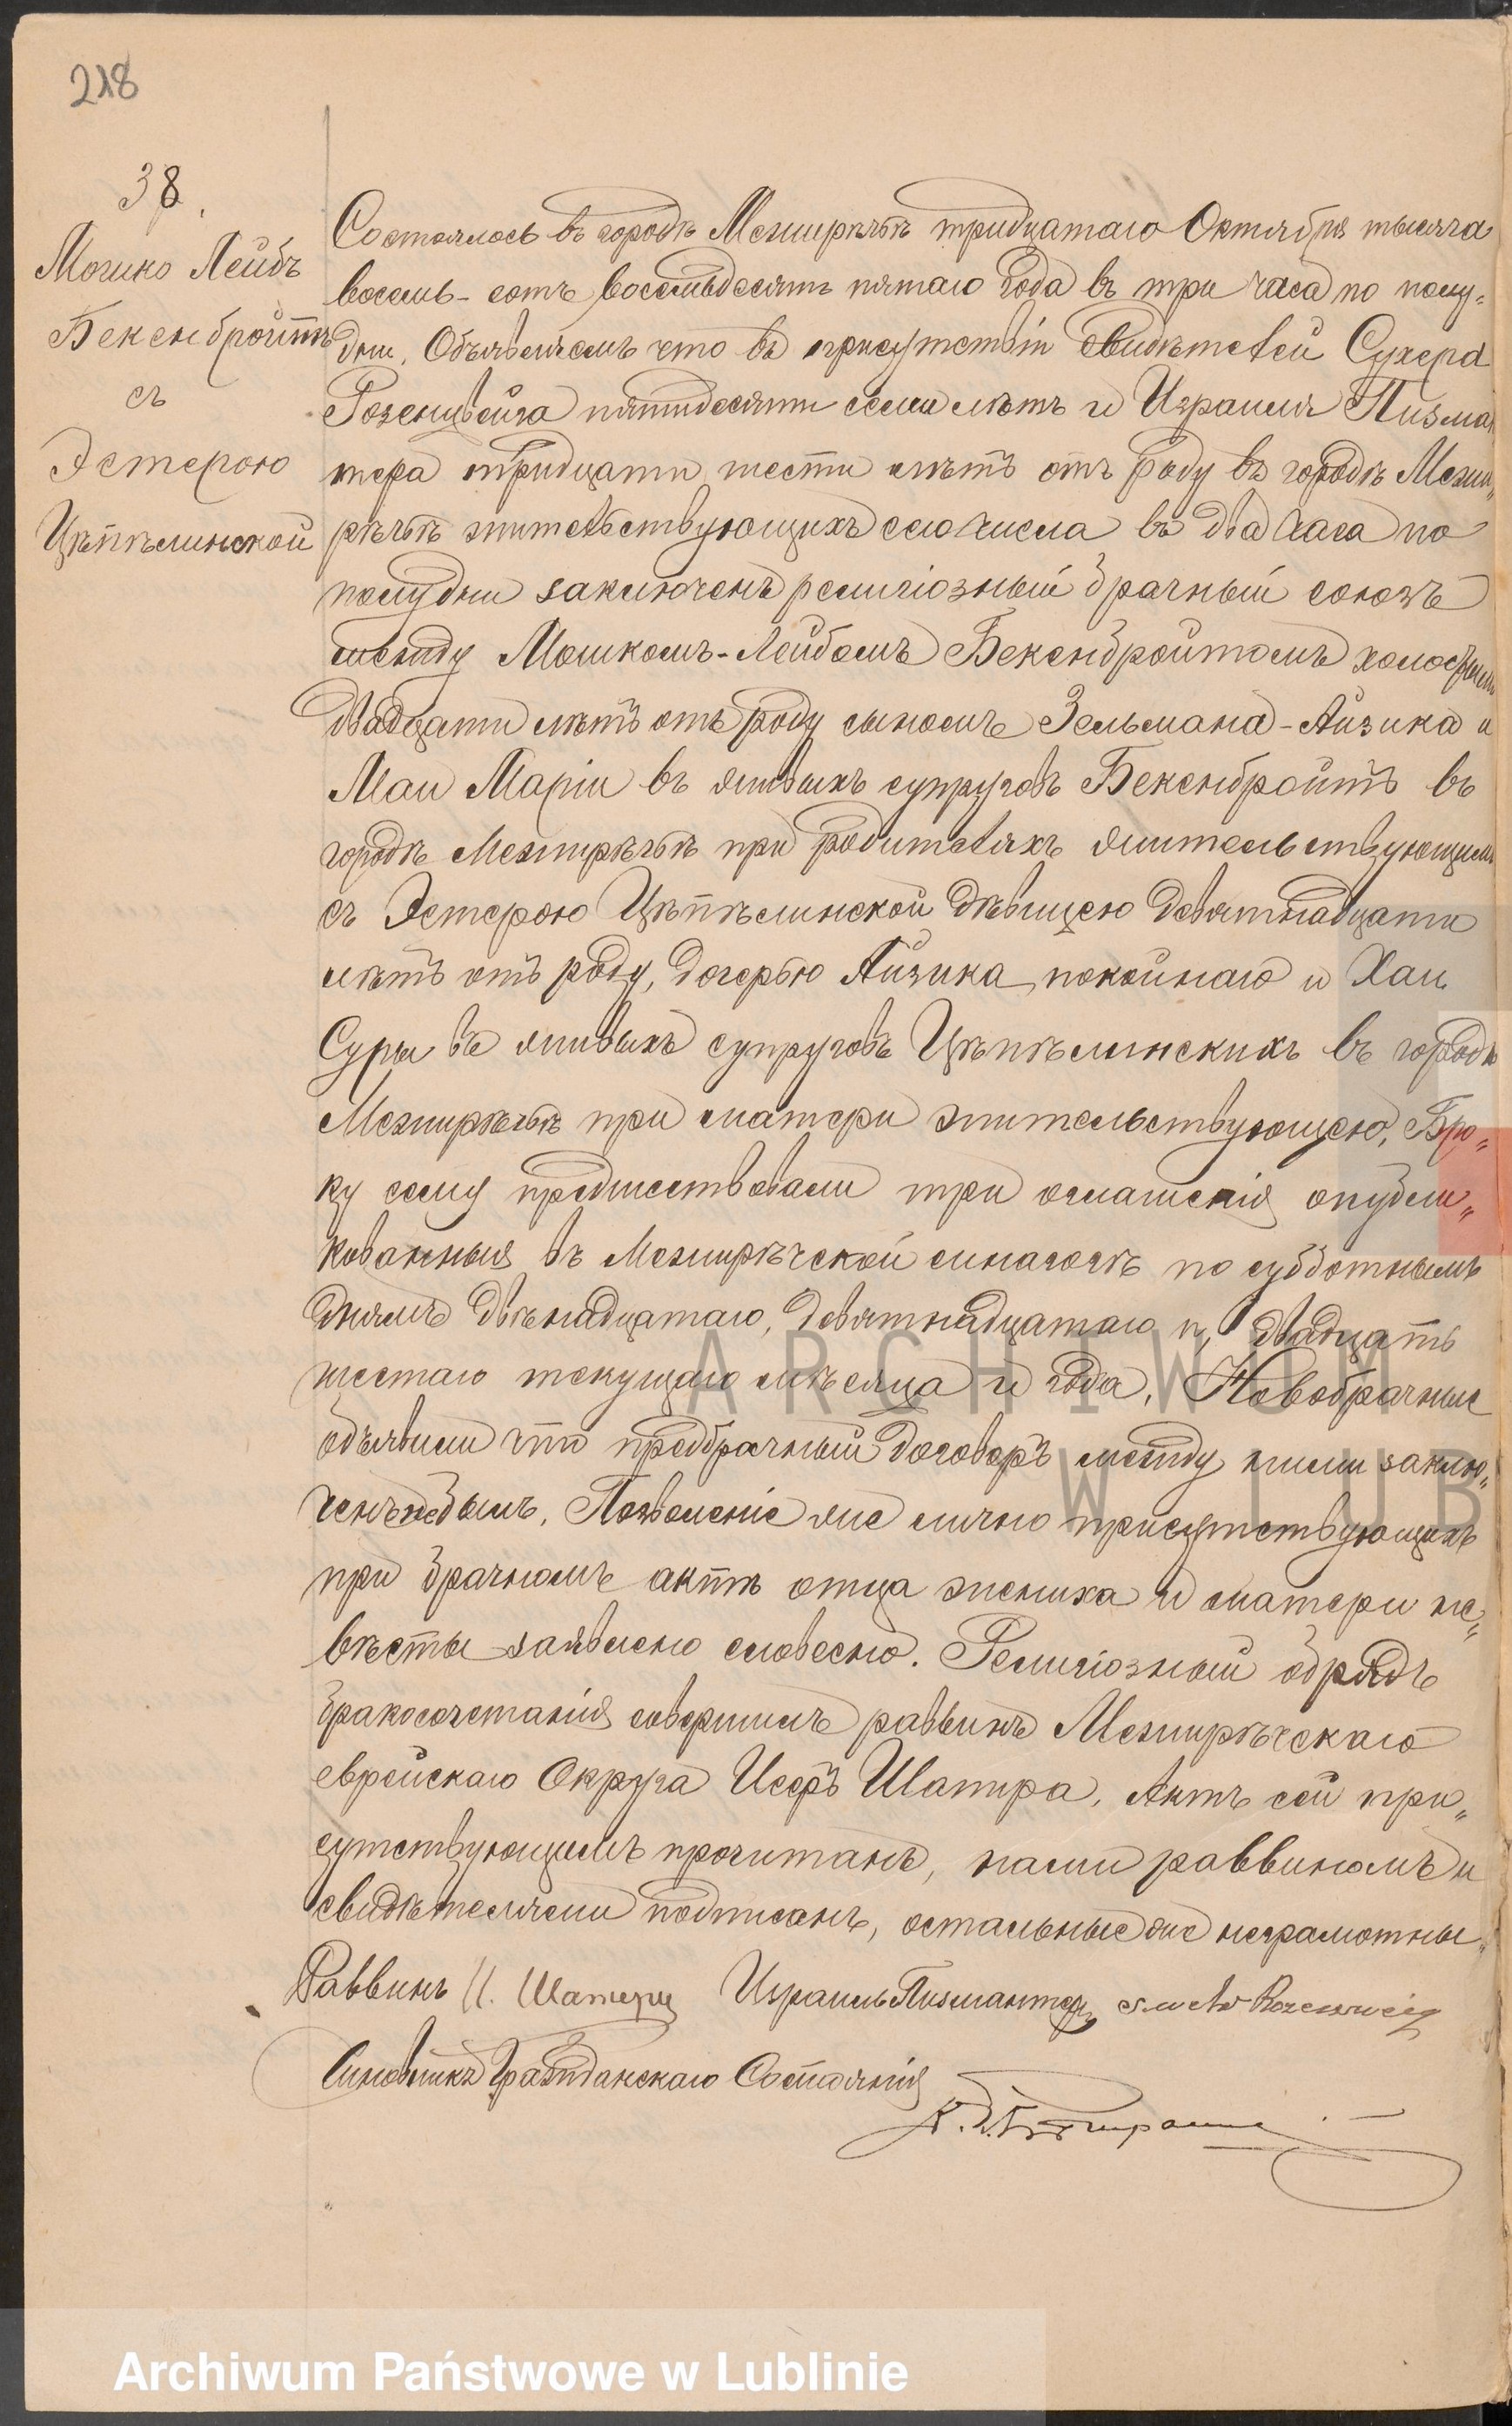 218
38.
Мошко Лейбъ
Бекенбройтъ
съ
Эстерою
Цѣпѣлинской
Состоялось въ городѣ Мезирѣчьѣ тридцатаго Октября тысяча
восемь-сотъ восемьдесятъ пятаго года въ три часа по полу„
дни. Объявляемъ что въ присутствіи свидѣтелей Сухера
Розенцвейга пятидесяти семи лѣтъ и Израиля Пизман
тера тридцати шести лѣтъ отъ роду въ городѣ Мези„
рѣчьѣ жительствующихъ сего числа въ два часа по
полудни заключенъ религіозный брачный союзъ
между Мошкомъ-Лейбомъ Бекенбройтомъ холостымъ
двадцати лѣтъ отъ роду сыномъ Зельмана-Айзика и
Маи Маріи въ живыхъ супруговъ Бекенбройтъ въ
городѣ Мезирѣчьѣ при родителяхъ жительствующимъ
съ Эстерою Цѣпѣлинской дѣвицею девятнадцати
лѣтъ отъ роду, дочерью Айзика покойнаго и Хаи
Суры въ живыхъ супруговъ Цѣпѣлинскихъ въ городѣ
Мезирѣчьѣ при матери жительствующею, Бра„
ку сему предшествовали три оглашенія опубли„
кованныя въ Мезирѣчской синагогѣ по субботнымъ
днямъ двѣнадцатаго, девятнадцатаго и, двадцать
шестаго текущаго мѣсяца и года. Новобрачные
объявили что предбрачный договоръ между ними заклю„
ченъ не былъ. Позволеніе же лично присутствующихъ
при брачномъ актѣ отца жениха и матери не„
вѣсты заявлено словесно. Религіозный обрядъ
бракосочетанія совершилъ раввинъ Мезирѣчскаго
еврейскаго Округа Иссеръ Шапира. Актъ сей при„
сутствующимъ прочитанъ, нами раввиномъ и
свидѣтелями подписанъ, остальные же неграмотны.
Раввинъ И. Шапиръ Израиль Пизмантеръ Rozencweig
Чиновникъ Гражданскаго Состоянія
ARCHIWUM
W LUB
Archiwum Państwowe w Lublinie